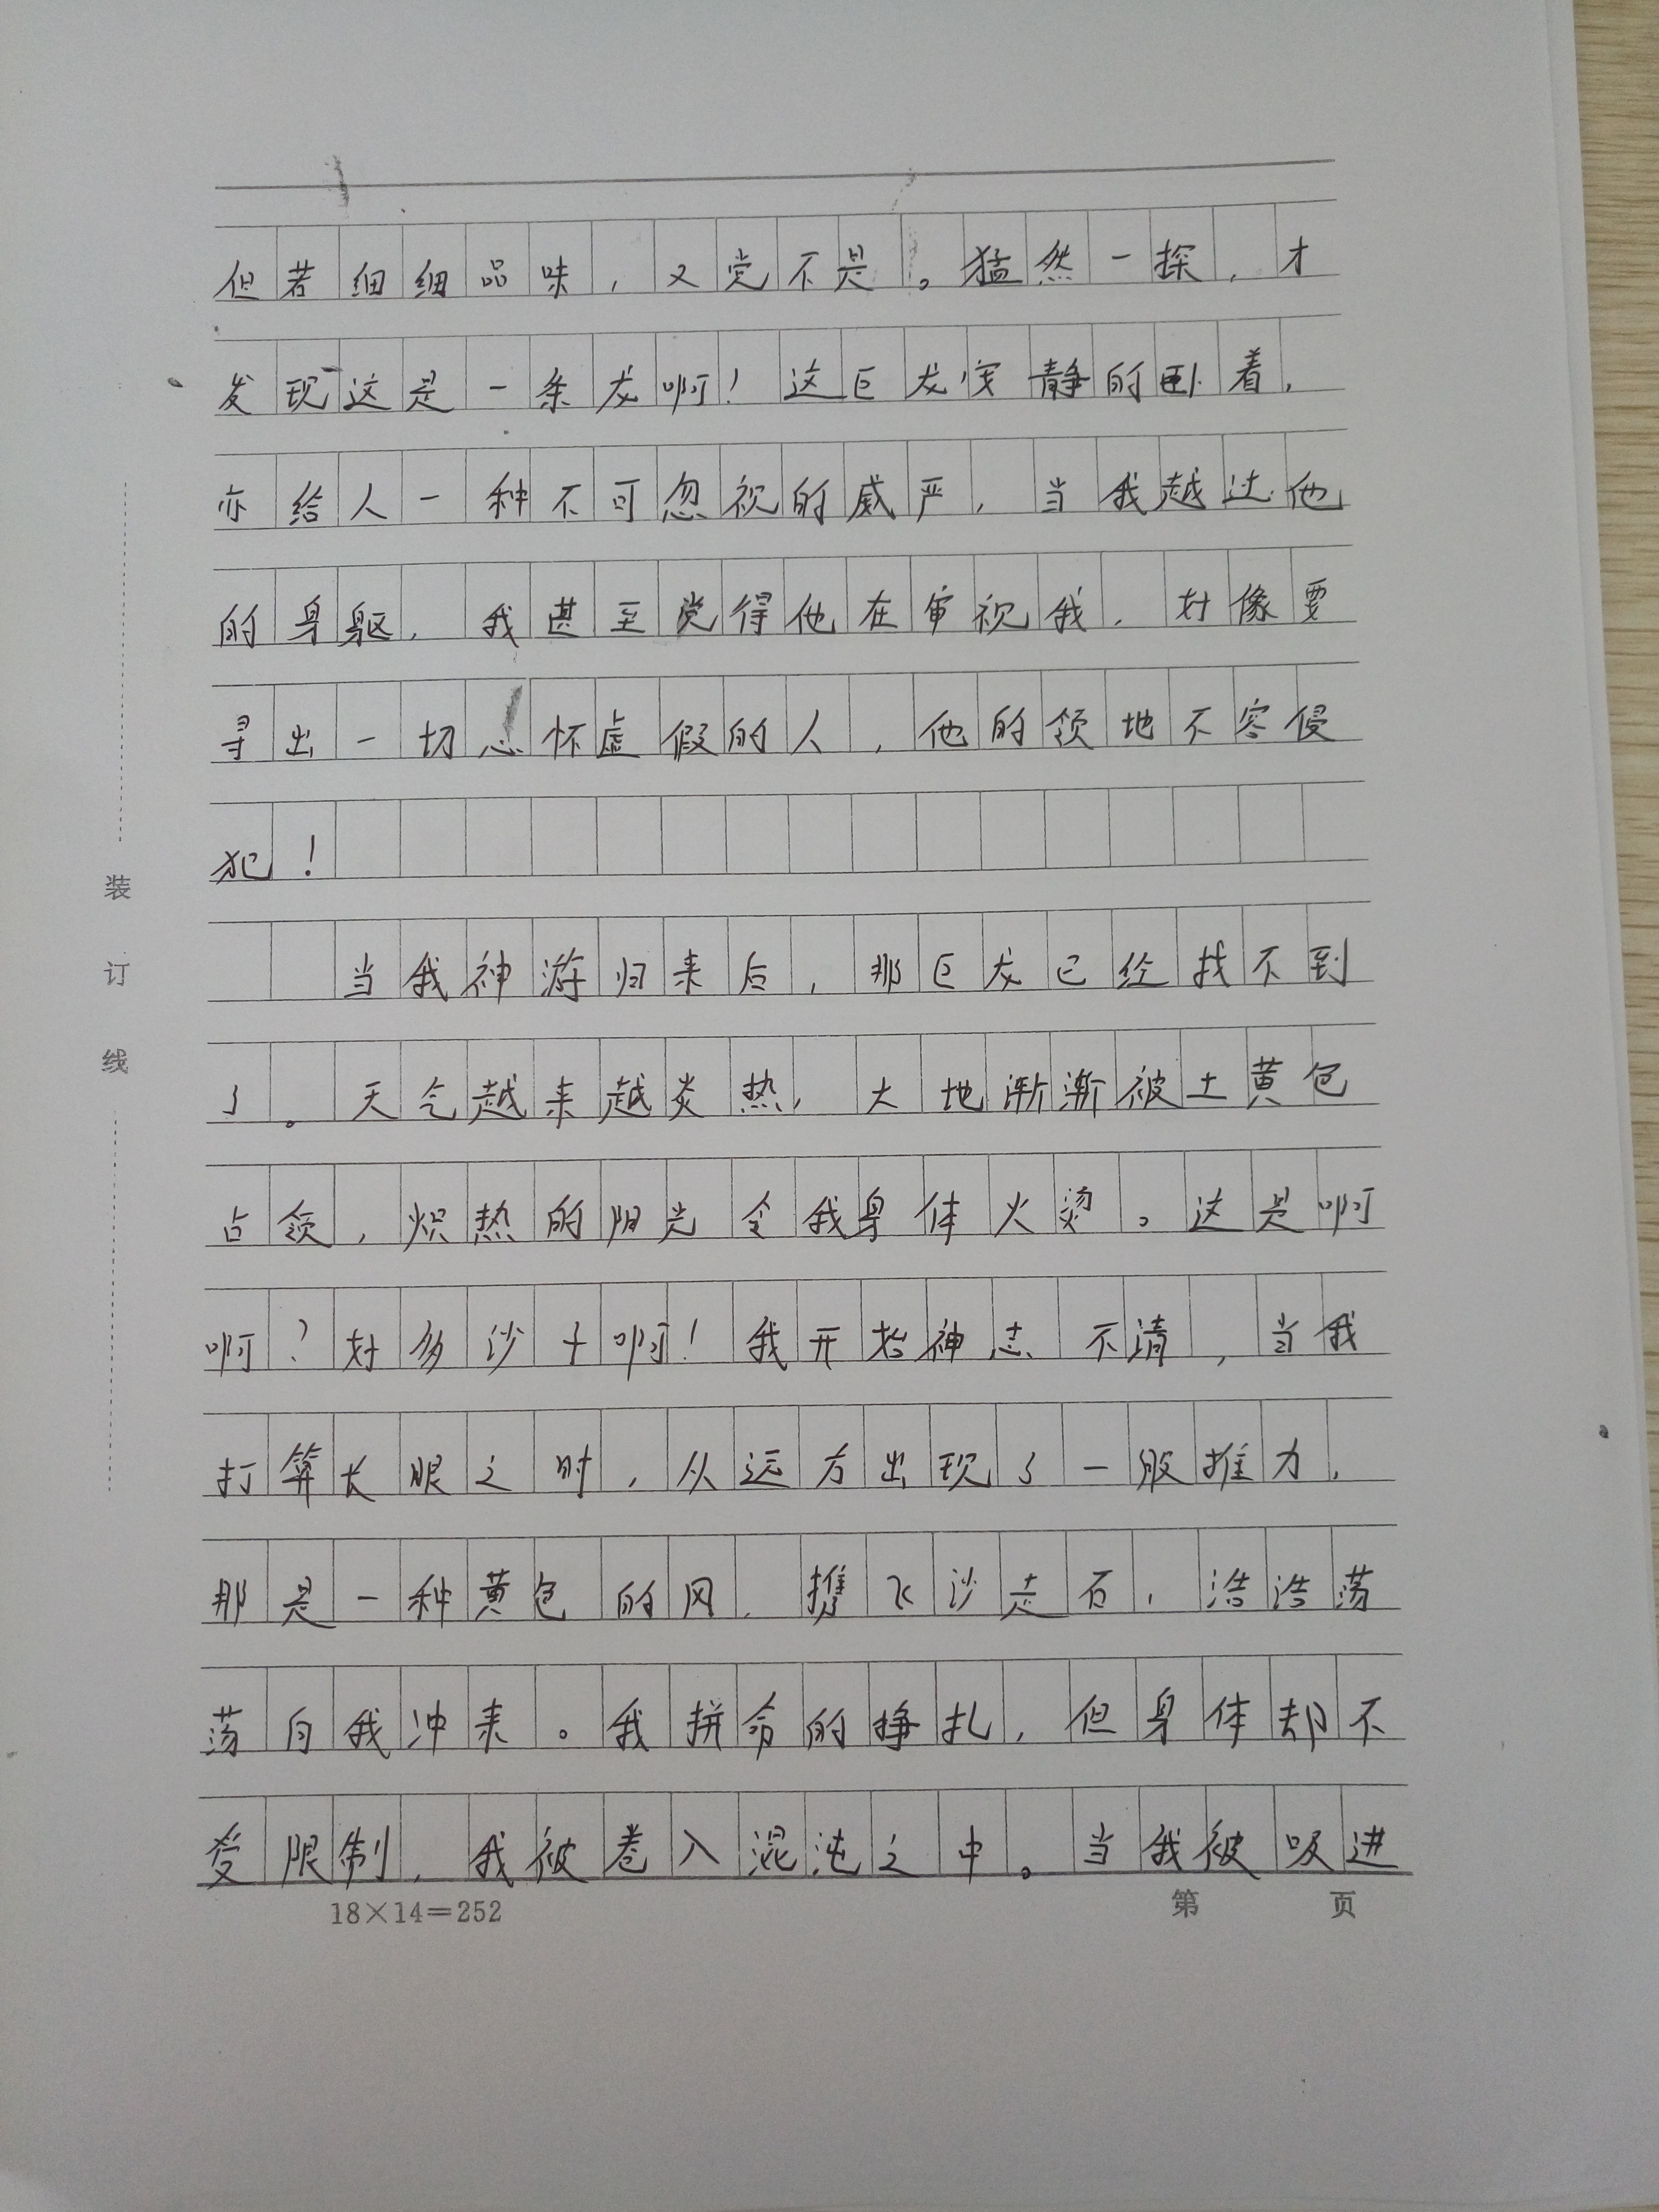 但若细细品味，又觉不是。猛然一探，才
发现这是一条龙啊！这巨龙安静的卧着，
亦给人一种不可忽视的威严，当我越过他
的身躯，我甚至觉得他在审视我，好像要
寻出一切心怀虚假的人，他的领地不容侵
犯！
当我神游归来后，那巨龙已经找不到
了。天气越来越炎热，大地渐渐被土黄色
占领，炽热的阳光令我身体火烫。这是啊
啊？好多沙子啊！我开始神志不清，当我
打算长眠之时，从远方出现了一股推力，
那是一种黄色的风，携飞沙走石，浩浩荡
荡向我冲来。我拼命的挣扎，但身体却不
受限制，我被卷入混沌之中。当我被吸进
18×14=252
第 页
装
订
线